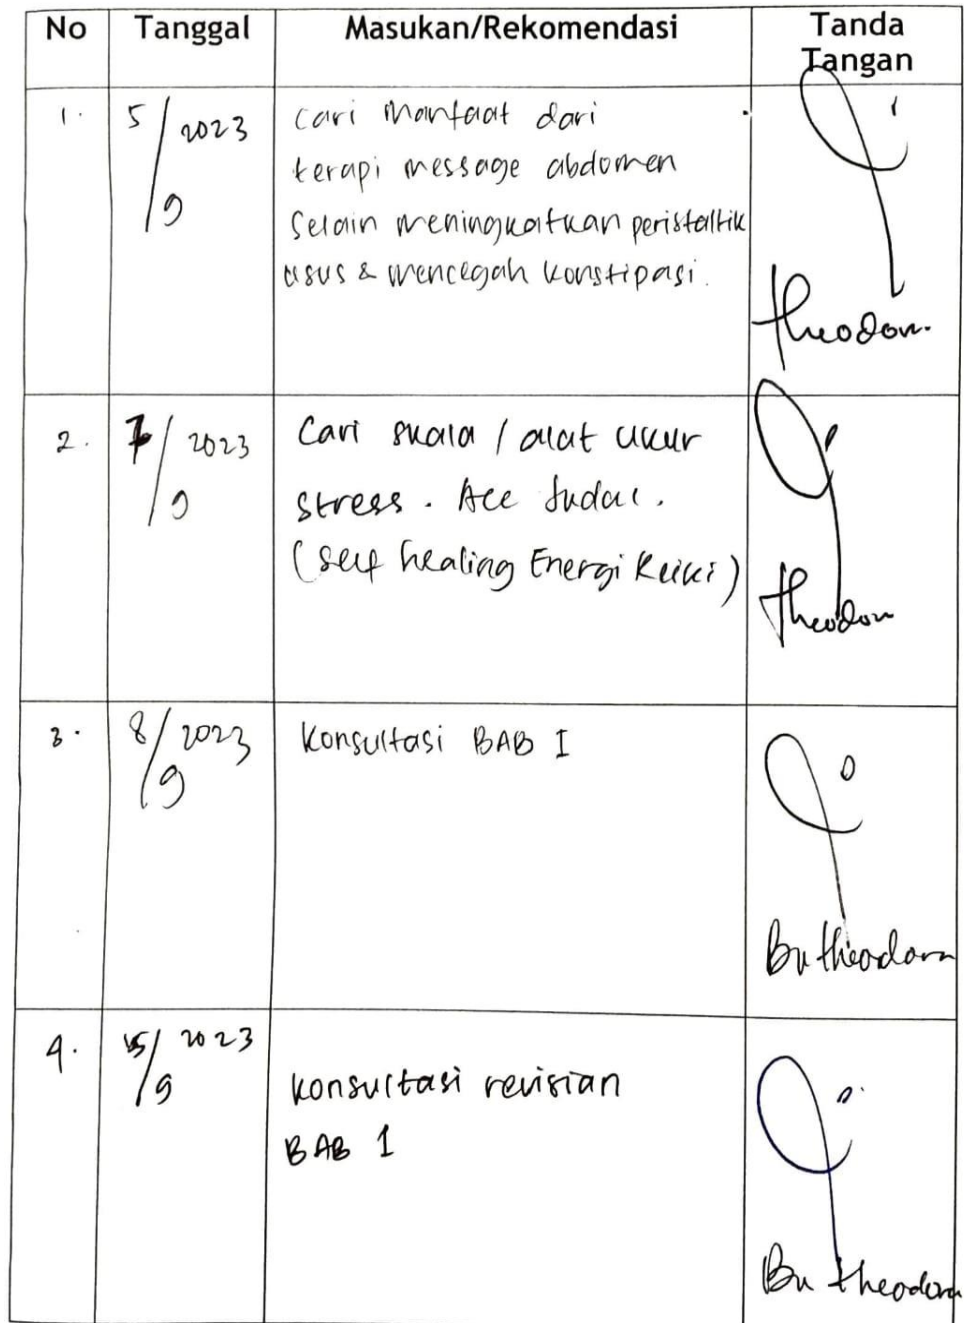 No Tanggal Masukan/Rekomendasi Tanda Tangan
1. 5/9 2023 Cari Manfaat dari
terapi message abdomen
Selain meningkatkan peristaltik
usus & mencegah konstipasi.
Theodora
2. 7/9 2023 Cari skala / alat ukur
stress. Acc Judul.
(Self healing Energi Reiki)
Theodora
3. 8/9 2023 Konsultasi BAB I
Bu Theodora
4. 15/9 2023
konsultasi revisian
BAB 1
Bu Theodora